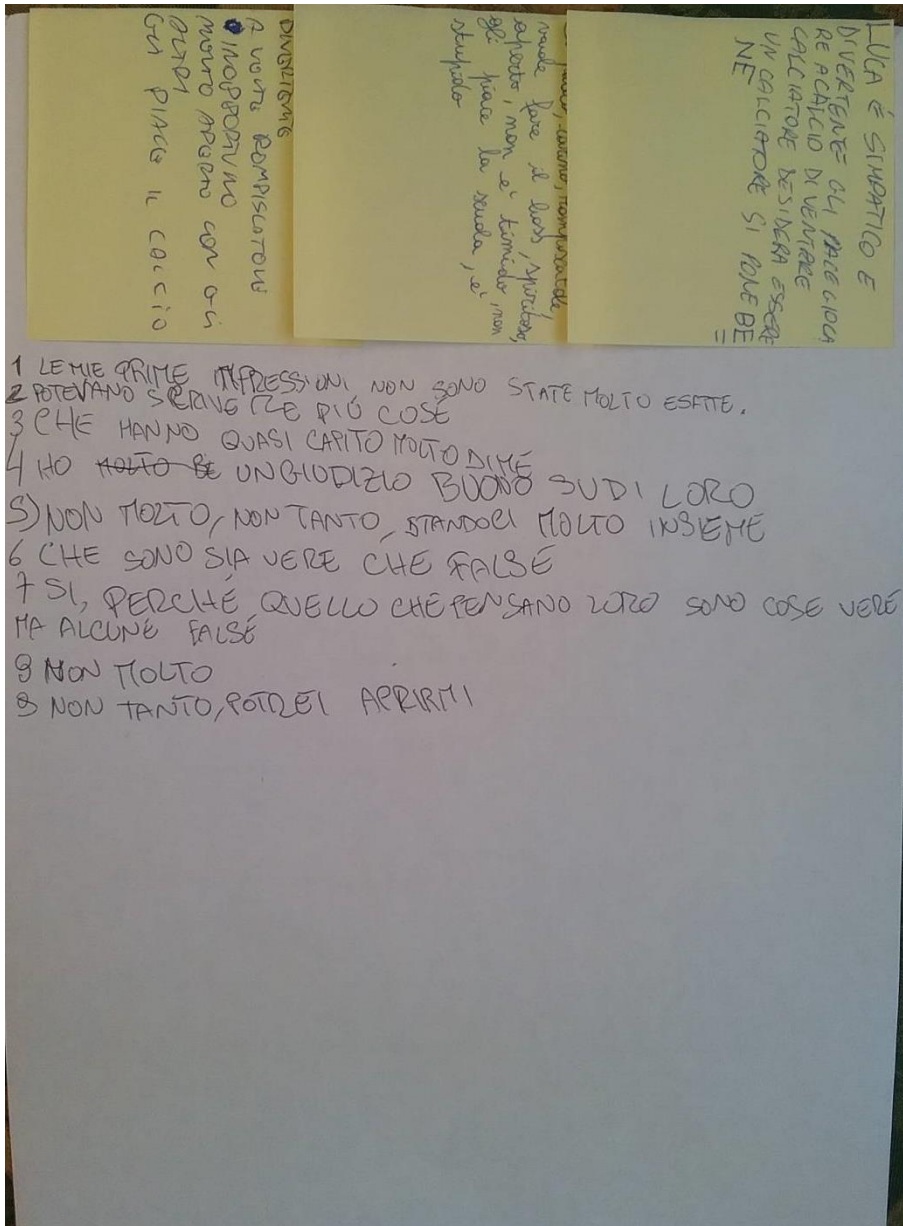 DIVERTENTE
A VOLTE ROMPISCATOLE
INOPPORTUNO
MOLTO APERTO CON GLI
ALTRI
GLI PIACE IL CALCIO
carino, rompiscatole,
vuole fare il boss, spiritoso,
aperto, non è timido, non
gli piace la scuola, è
stupido
LUCA É SIMPATICO E
DIVERTENTE GLI PIACE GIOCA
RE A CALCIO DIVENTARE
CALCIATORE DESIDERA ESSERE
UN CALCIATORE SI PONE BE
NE
1 LE MIE PRIME IMPRESSIONI NON SONO STATE MOLTO ESATTE.
2 POTEVANO SCRIVERE PIÚ COSE
3 CHE HANNO QUASI CAPITO MOLTO DI ME
4 HO MOLTO BE UN GIUDIZIO BUONO SU DI LORO
5) NON MOLTO, NON TANTO, STANDOCI MOLTO INSIEME
6 CHE SONO SIA VERE CHE FALSE
7 SI, PERCHÉ QUELLO CHE PENSANO LORO SONO COSE VERE
MA ALCUNE FALSE
8 NON MOLTO
9 NON TANTO, POTREI APRIRMI